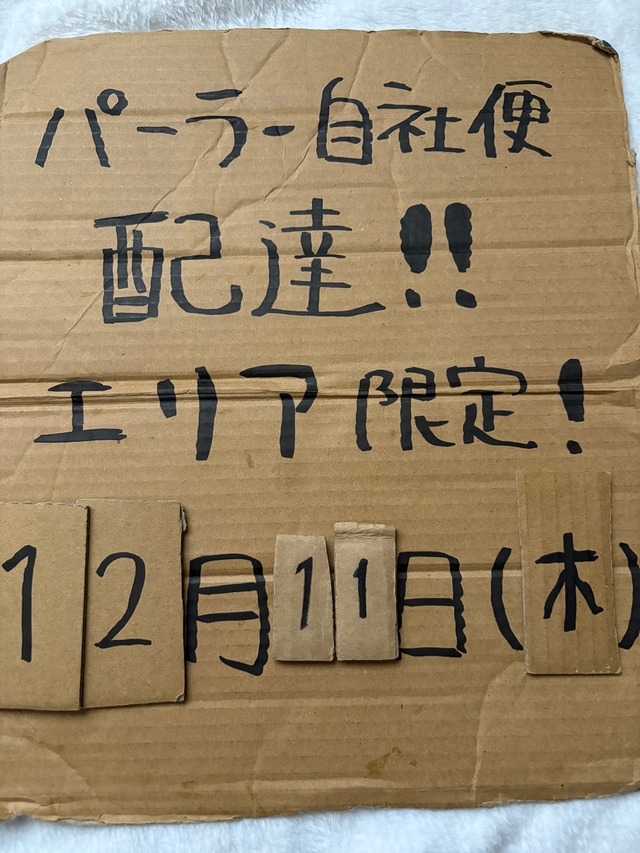 パーラー自社便
配達!!
エリア限定!
12月11日(木)